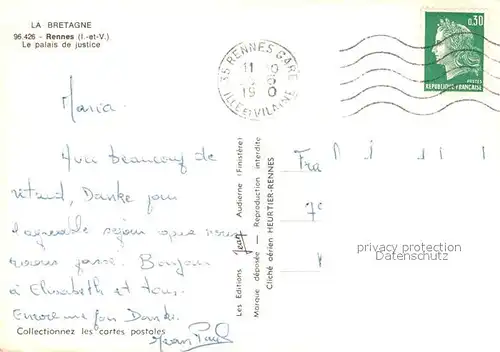 LA BRETAGNE
96.426 - Rennes (I.-et-V.)
Le palais de justice
35 RENNES GARE
11
19
ILLE et VILAINE
0,30
POSTES
REPUBLIQUE FRANÇAISE
Maria.
Avec beaucoup de
retard, Danke pour
l'agréable séjour que nous
avons passé. Bonjour
à Elisabeth et tous.
Encore une fois Danke.
Jean Paul
Collectionnez les cartes postales
Les Editions Jean Audierne (Finistère)
Marque déposée — Reproduction interdite
Cliché aérien HEURTIER-RENNES
Fra
privacy protection
Datenschutz